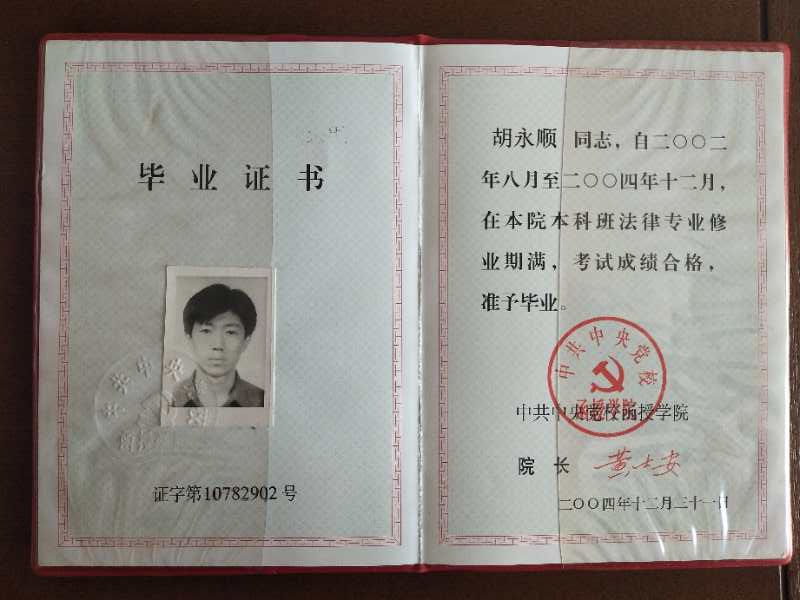 毕业证书
证字第10782902号
胡永顺 同志，自二〇〇二
年八月至二〇〇四年十二月，
在本院本科班法律专业修
业期满，考试成绩合格，
准予毕业。
中共中央党校
中共中央党校函授学院
院 长 黄士安
二〇〇四年十二月三十一日